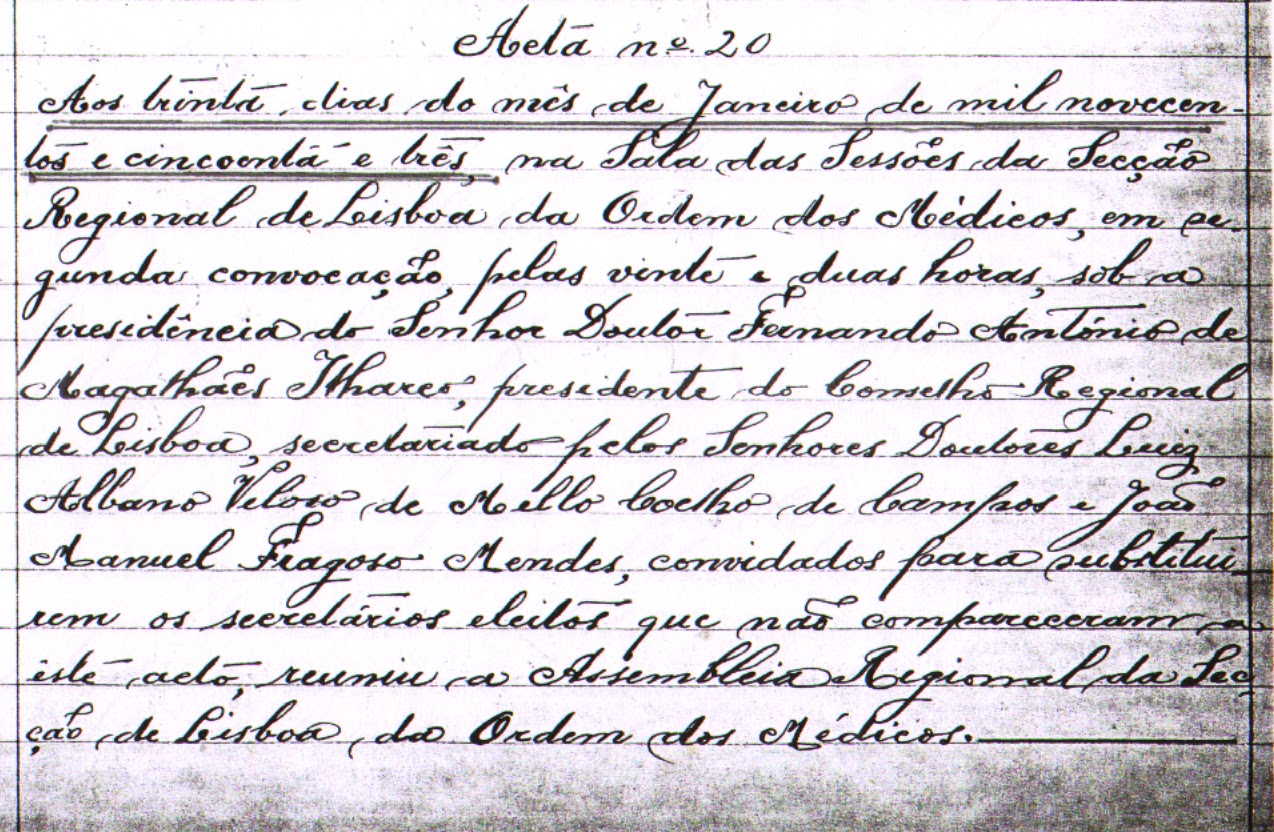 Acta nº. 20
Aos trinta dias do mês de Janeiro de mil novecen-
tos e cincoenta e três, na Sala das Sessões da Secção
Regional de Lisboa da Ordem dos Médicos, em se-
gunda convocação, pelas vinte e duas horas, sob a
presidência do Senhor Doutor Fernando António de
Magalhães Ilharco, presidente do Conselho Regional
de Lisboa, secretariado pelos Senhores Doutores Luiz
Albano Veloso de Mello Coelho de Campos e João
Manuel Fragoso Mendes, convidados para substituí-
rem os secretários eleitos que não compareceram a
êste acto, reuniu a Assembleia Regional da Sec-
ção de Lisboa da Ordem dos Médicos.